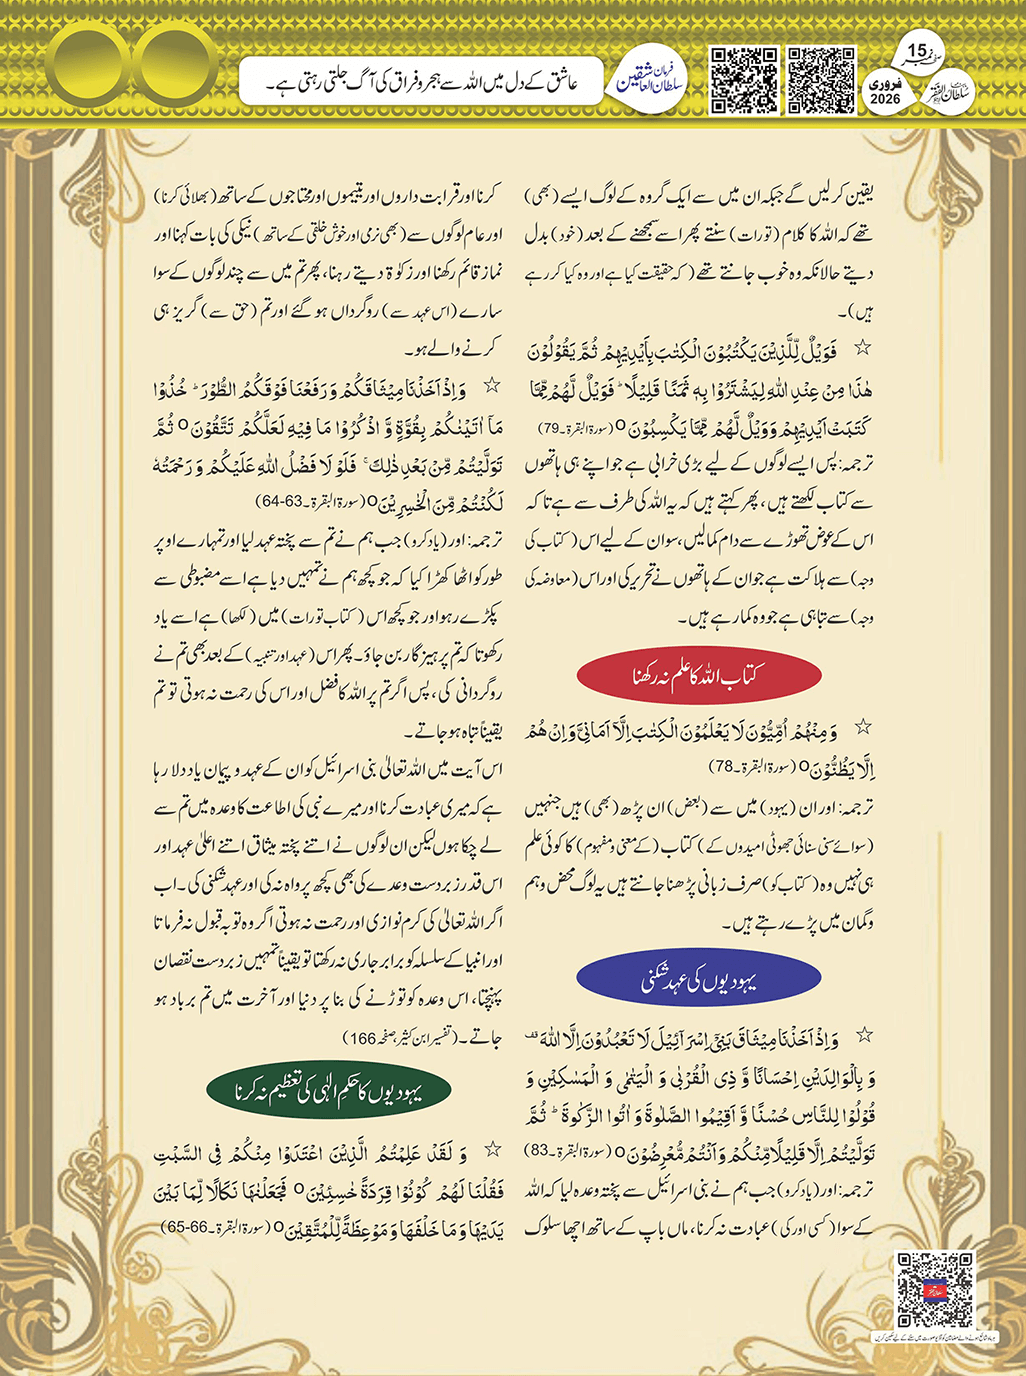 صفحہ نمبر 15
ماہنامہ سلطان الفقر لاہور
فروری
2026
فرمان
سلطان العاشقین
عاشق کے دل میں اللہ سے ہجر و فراق کی آگ جلتی رہتی ہے۔
یقین کر لیں گے جبکہ ان میں سے ایک گروہ کے لوگ ایسے (بھی)
تھے کہ اللہ کا کلام (تورات) سنتے پھر اسے سمجھنے کے بعد (خود) بدل
دیتے حالانکہ وہ خوب جانتے تھے (کہ حقیقت کیا ہے اور وہ کیا کر رہے
ہیں)۔
☆ فَوَيْلٌ لِّلَّذِيْنَ يَكْتُبُوْنَ الْكِتٰبَ بِاَيْدِيْهِمْ ثُمَّ يَقُوْلُوْنَ
هٰذَا مِنْ عِنْدِ اللّٰهِ لِيَشْتَرُوْا بِهٖ ثَمَنًا قَلِيْلًا ؕ فَوَيْلٌ لَّهُمْ مِّمَّا
كَتَبَتْ اَيْدِيْهِمْ وَوَيْلٌ لَّهُمْ مِّمَّا يَكْسِبُوْنَ o (سورۃ البقرۃ۔79)
ترجمہ: پس ایسے لوگوں کے لیے بڑی خرابی ہے جو اپنے ہی ہاتھوں
سے کتاب لکھتے ہیں، پھر کہتے ہیں کہ یہ اللہ کی طرف سے ہے تا کہ
اس کے عوض تھوڑے سے دام کما لیں، سو ان کے لیے اس (کتاب کی
وجہ) سے ہلاکت ہے جو ان کے ہاتھوں نے تحریر کی اور اس (معاوضہ کی
وجہ) سے تباہی ہے جو وہ کما رہے ہیں۔
کتاب اللہ کا علم نہ رکھنا
☆ وَمِنْهُمْ اُمِّيُّوْنَ لَا يَعْلَمُوْنَ الْكِتٰبَ اِلَّآ اَمَانِيَّ وَاِنْ هُمْ
اِلَّا يَظُنُّوْنَ o (سورۃ البقرۃ۔78)
ترجمہ: اور ان (یہود) میں سے (بعض) ان پڑھ (بھی) ہیں جنہیں
(سوائے سنی سنائی جھوٹی امیدوں کے) کتاب (کے معنی و مفہوم) کا کوئی علم
ہی نہیں وہ (کتاب کو) صرف زبانی پڑھنا جانتے ہیں یہ لوگ محض وہم
و گمان میں پڑے رہتے ہیں۔
یہودیوں کی عہد شکنی
☆ وَاِذْ اَخَذْنَا مِيْثَاقَ بَنِيْٓ اِسْرَآئِيْلَ لَا تَعْبُدُوْنَ اِلَّا اللّٰهَ قف
وَ بِالْوَالِدَيْنِ اِحْسَانًا وَّ ذِي الْقُرْبٰى وَ الْيَتٰمٰى وَ الْمَسٰكِيْنِ وَ
قُوْلُوْا لِلنَّاسِ حُسْنًا وَّ اَقِيْمُوا الصَّلٰوةَ وَ اٰتُوا الزَّكٰوةَ ؕ ثُمَّ
تَوَلَّيْتُمْ اِلَّا قَلِيْلًا مِّنْكُمْ وَاَنْتُمْ مُّعْرِضُوْنَ o (سورۃ البقرۃ۔83)
ترجمہ: اور (یاد کرو) جب ہم نے بنی اسرائیل سے پختہ وعدہ لیا کہ اللہ
کے سوا (کسی اور کی) عبادت نہ کرنا، ماں باپ کے ساتھ اچھا سلوک
کرنا اور قرابت داروں اور یتیموں اور محتاجوں کے ساتھ (بھلائی کرنا)
اور عام لوگوں سے (بھی نرمی اور خوش خلقی کے ساتھ) نیکی کی بات کہنا اور
نماز قائم رکھنا اور زکوٰۃ دیتے رہنا، پھر تم میں سے چند لوگوں کے سوا
سارے (اس عہد سے) روگرداں ہو گئے اور تم (حق سے) گریز ہی
کرنے والے ہو۔
☆ وَاِذْ اَخَذْنَا مِيْثَاقَكُمْ وَرَفَعْنَا فَوْقَكُمُ الطُّوْرَ ؕ خُذُوْا
مَآ اٰتَيْنٰكُمْ بِقُوَّةٍ وَّ اذْكُرُوْا مَا فِيْهِ لَعَلَّكُمْ تَتَّقُوْنَ o ثُمَّ
تَوَلَّيْتُمْ مِّنْ بَعْدِ ذٰلِكَ ۚ فَلَوْ لَا فَضْلُ اللّٰهِ عَلَيْكُمْ وَ رَحْمَتُهٗ
لَكُنْتُمْ مِّنَ الْخٰسِرِيْنَ o (سورۃ البقرۃ۔63-64)
ترجمہ: اور (یاد کرو) جب ہم نے تم سے پختہ عہد لیا اور تمہارے اوپر
طور کو اٹھا کھڑا کیا کہ جو کچھ ہم نے تمہیں دیا ہے اسے مضبوطی سے
پکڑے رہو اور جو کچھ اس (کتاب تورات) میں (لکھا) ہے اسے یاد
رکھو تا کہ تم پرہیز گار بن جاؤ۔ پھر اس (عہد اور تنبیہ) کے بعد بھی تم نے
روگردانی کی، پس اگر تم پر اللہ کا فضل اور اس کی رحمت نہ ہوتی تو تم
یقیناً تباہ ہو جاتے۔
اس آیت میں اللہ تعالیٰ بنی اسرائیل کو ان کے عہد و پیمان یاد دلا رہا
ہے کہ میری عبادت کرنا اور میرے نبی کی اطاعت کا وعدہ میں تم سے
لے چکا ہوں لیکن ان لوگوں نے اتنے پختہ میثاق اتنے اعلیٰ عہد اور
اس قدر زبردست وعدے کی بھی کچھ پرواہ نہ کی اور عہد شکنی کی۔ اب
اگر اللہ تعالیٰ کی کرم نوازی اور رحمت نہ ہوتی اگر وہ توبہ قبول نہ فرماتا
اور انبیا کے سلسلہ کو برابر جاری نہ رکھتا تو یقیناً تمہیں زبردست نقصان
پہنچتا، اس وعدہ کو توڑنے کی بنا پر دنیا اور آخرت میں تم برباد ہو
جاتے۔ (تفسیر ابن کثیر، صفحہ 166)
یہودیوں کا حکمِ الٰہی کی تعظیم نہ کرنا
☆ وَ لَقَدْ عَلِمْتُمُ الَّذِيْنَ اعْتَدَوْا مِنْكُمْ فِي السَّبْتِ
فَقُلْنَا لَهُمْ كُوْنُوْا قِرَدَةً خٰسِئِيْنَ o فَجَعَلْنٰهَا نَكَالًا لِّمَا بَيْنَ
يَدَيْهَا وَ مَا خَلْفَهَا وَ مَوْعِظَةً لِّلْمُتَّقِيْنَ o (سورۃ البقرۃ۔65-66)